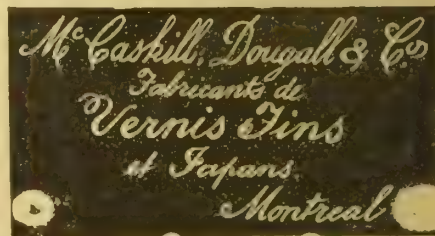 Mc Caskill, Dougall & Co
Fabricants de
Vernis Fins
et Japans
Montreal